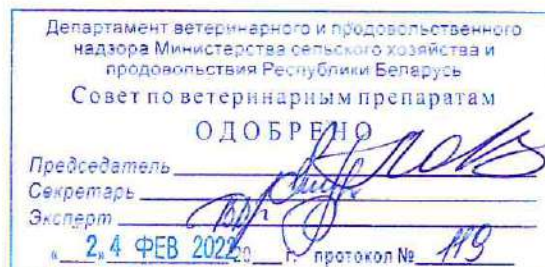 Департамент ветеринарного и продовольственного
надзора Министерства сельского хозяйства и
продовольствия Республики Беларусь
Совет по ветеринарным препаратам
ОДОБРЕНО
Председатель
Секретарь
Эксперт
« 24 ФЕВ 2022 20 г. протокол № 119